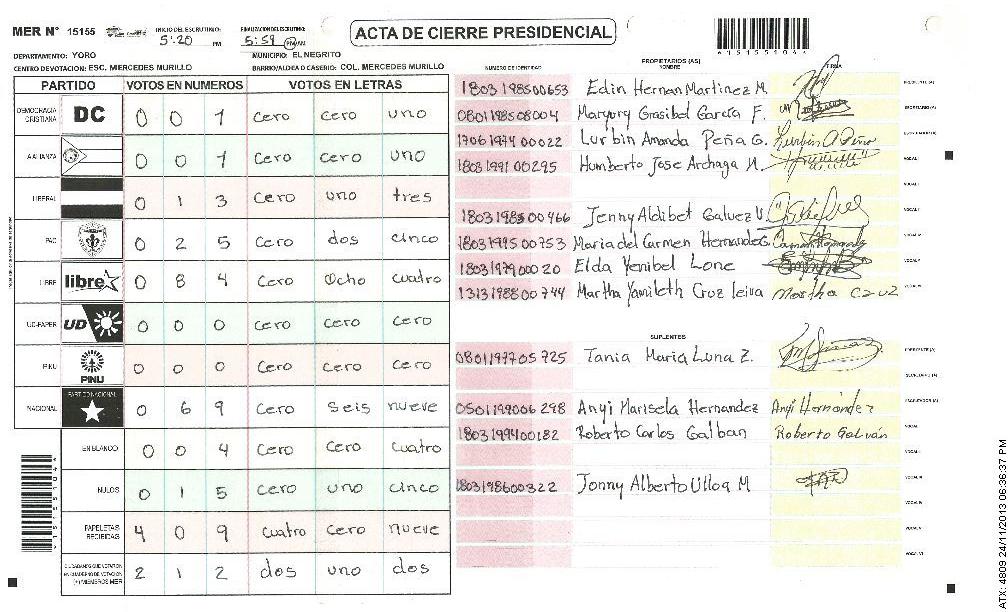 MER N° 15155
INICIO DEL ESCRUTINIO: 5:20 PM
FINALIZACION DEL ESCRUTINIO: 5:59 PM
ACTA DE CIERRE PRESIDENCIAL
DEPARTAMENTO: YORO
MUNICIPIO: EL NEGRITO
CENTRO DE VOTACION: ESC. MERCEDES MURILLO
BARRIO/ALDEA O CASERIO: COL. MERCEDES MURILLO
PARTIDO VOTOS EN NUMEROS VOTOS EN LETRAS
DEMOCRACIA CRISTIANA DC 0 0 1 cero cero uno
ALIANZA 0 0 1 cero cero uno
LIBERAL 0 1 3 cero uno tres
PAC 0 2 5 cero dos cinco
LIBRE libre 0 8 4 cero Ocho cuatro
UD-FAPER UD 0 0 0 cero cero cero
PINU PINU 0 0 0 cero cero cero
NACIONAL PARTIDO NACIONAL 0 6 9 cero seis nueve
EN BLANCO 0 0 4 cero cero cuatro
NULOS 0 1 5 cero uno cinco
PAPELETAS RECIBIDAS 4 0 9 cuatro cero nueve
CIUDADANOS QUE VOTARON EN CUADERNO DE VOTACION (+) MIEMBROS MER 2 1 2 dos uno dos
PROPIETARIOS (AS)
NUMERO DE IDENTIDAD NOMBRE FIRMA
1803198500653 Edin Hernan Martinez M. PRESIDENTE (A)
0801198508004 Maryury Grasibel García F. SECRETARIO (A)
1706197400022 Lurbin Amanda Peña G. Lurbin A Peña ESCRUTADOR (A)
1803199100295 Humberto Jose Archaga M. VOCAL I
1803198500466 Jenny Aldibet Galvez V.
1803199500753 Maria del Carmen Hernandez G.
1803197900020 Elda Yenibel Lone
1313198800744 Martha Yamileth Cruz leiva Martha Cruz
SUPLENTES
0801197705725 Tania Maria Luna Z. PRESIDENTE (A)
SECRETARIO (A)
0501199006298 Anyi Marisela Hernandez Anyi Hernández ESCRUTADOR (A)
1803199400182 Roberto Carlos Galban Roberto Galván VOCAL I
1803198600322 Jonny Alberto Ulloa M
41515504
ATX: 4809 24/11/2013 06:36:37 PM